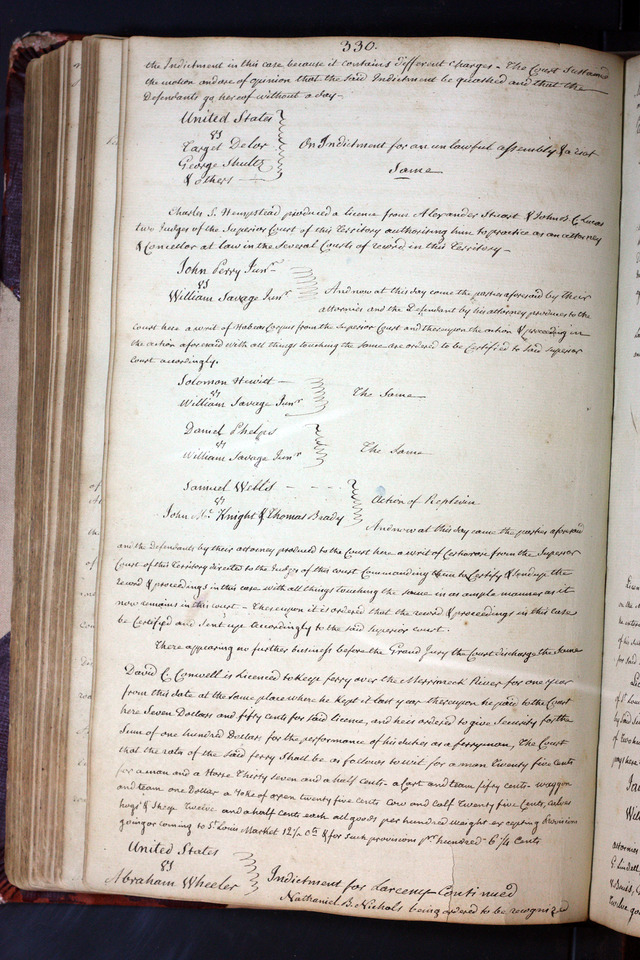 330.
the Indictment in this case because it contains different charges - The Court Sustained
the motion and are of opinion that the said Indictment be quashed and that the
Defendants go hereof without a day -
United States
vs
Target Delor On Indictment for an unlawful assembly & a riot
George Shultz Same
& others
Charles S. Hempstead produced a licence from Alexander Stuart & John B C Lucas
two Judges of the Superior Court of this Territory authorising him to practice as an attorney
& Councellor at law in the Several Courts of record in this Territory -
John Perry Junr
vs
William Savage Junr And now at this day come the parties aforesaid by their
attornies and the Defendant by his attorney produces to the
Court here a writ of Habeas Corpus from the Superior Court and thereupon the action & proceeding in
the action aforesaid with all things touching the same are ordered to be Certified to Said Superior
Court accordingly.
Solomon Hewitt -
vs The Same
William Savage Junr
Daniel Phelps
vs The Same
William Savage Junr
Samuel Wells - - - -
vs Action of Replevin
John Mc Knight & Thomas Brady
And now at this day came the parties aforesaid
and the Defendants by their attorney produced to the Court here a writ of Certiorari from the Superior
Court of this Territory directed to the Judges of this court Commanding them to Certify & send up the
record & proceedings in this case with all things touching the same in as ample manner as it
now remains in this court - Thereupon it is ordered that the record & proceedings in this case
be Certified and sent up accordingly to the said superior court.
There appearing no further business before the Grand Jury the Court discharge the Same
David C Conwell is Licenced to keep ferry over the Merrimeck River for one year
from this date at the same place where he kept it last year thereupon he paid to the Court
here Seven Dollars and fifty Cents for said license, and he is ordered to give Security for the
Sum of one hundred Dollars for the performance of his duties as a ferryman, The Court
that the rates of the said ferry Shall be as follows to wit, for a man Twenty five Cents
for a man and a Horse Thirty seven and a half Cents - a Cart and team fifty Cents - waggon
and team one Dollar a Yoke of oxen twenty five Cents Cow and Calf Twenty five Cents, calves
hogs & Sheep Twelve and a half Cents each all goods per hundred weight excepting Provisions
going or coming to St Louis Market 12½ cts & for such provisions pr hundred 6¼ Cents
United States
vs
Abraham Wheeler Indictment for Larceny Continued
Nathaniel B. Nichols being ordered to be recognized